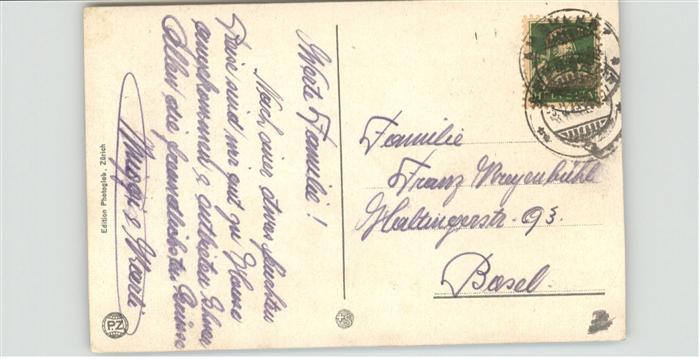 Werte Familie!
Nach einer etwas feuchten
Reise sind wir gut zu Hause
angekommen & entbieten Ihnen
Allen die freundlichsten Grüsse
& Marti
Edition Photoglob, Zürich
PZ
HELVETIA
Familie
Franz Wreyenbühl
Haltingerstr. 93.
Basel.